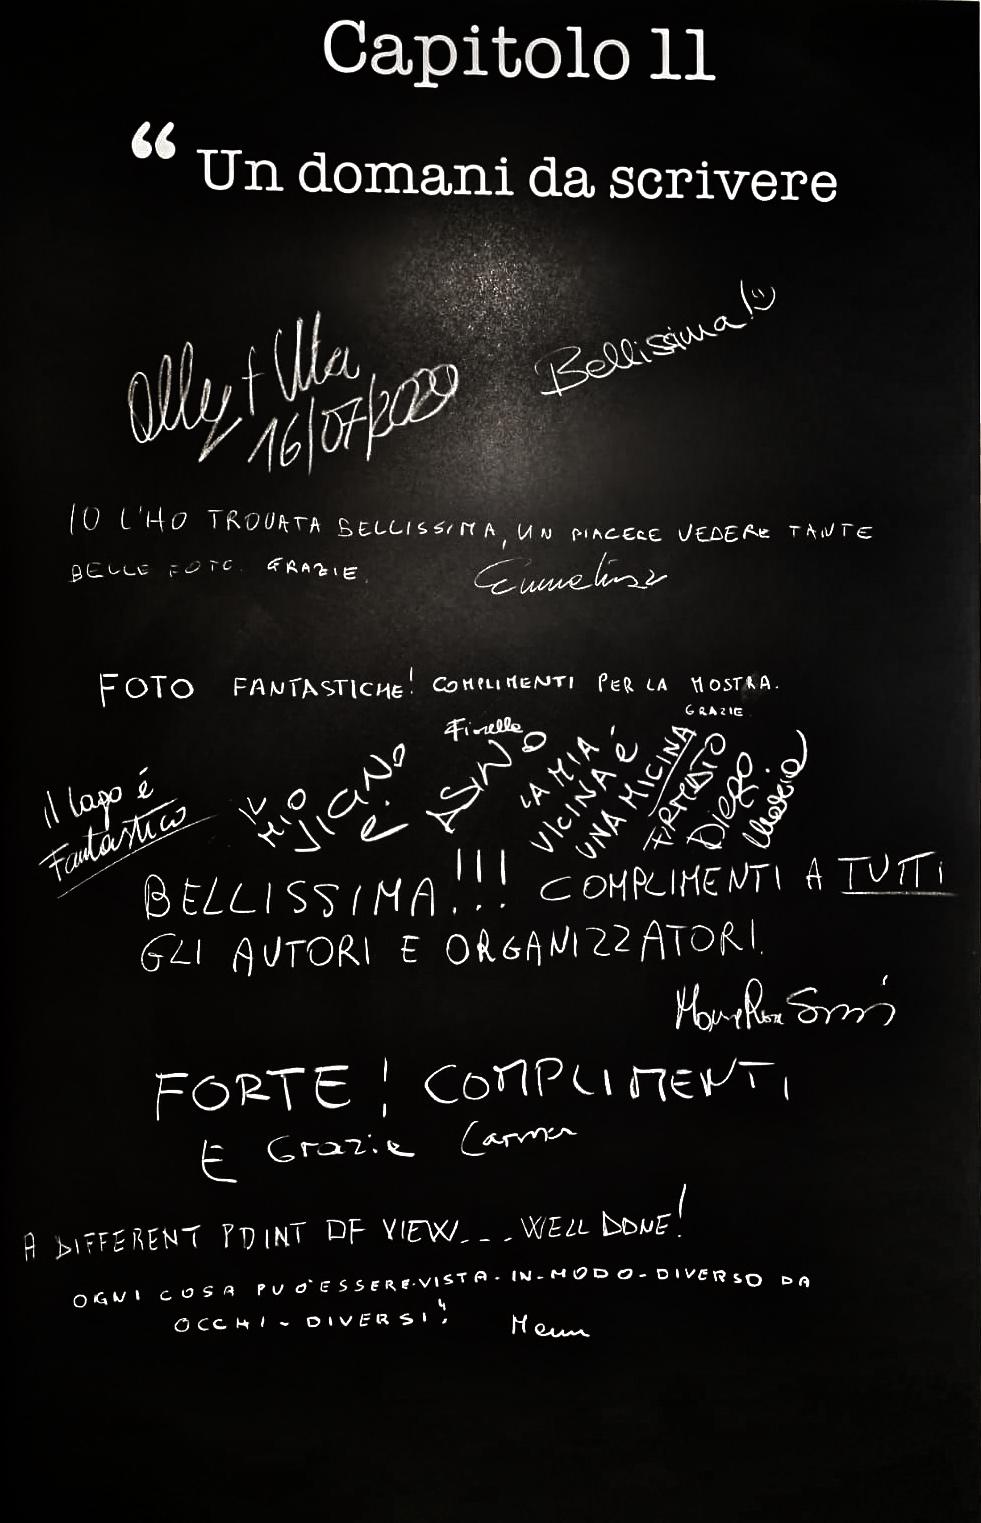 Capitolo 11
“ Un domani da scrivere
Bellissima!
Olly + Ulla
16/07/2020
IO L'HO TROVATA BELLISSIMA, UN PIACERE VEDERE TANTE
BELLE FOTO. GRAZIE.
FOTO FANTASTICHE! COMPLIMENTI PER LA MOSTRA.
GRAZIE
Il lago é
Fantastico
IL
MIO
VICINO
E'
ASINO
Fiorello
LA MIA
VICINA É
UNA MICINA
DIEGO
BELLISSIMA!!! COMPLIMENTI A TUTTI
GLI AUTORI E ORGANIZZATORI.
FORTE! COMPLIMENTI
E Grazie Carmen
A DIFFERENT POINT OF VIEW... WELL DONE!
OGNI COSA PUO' ESSERE-VISTA-IN-MODO-DIVERSO DA
OCCHI-DIVERSI!